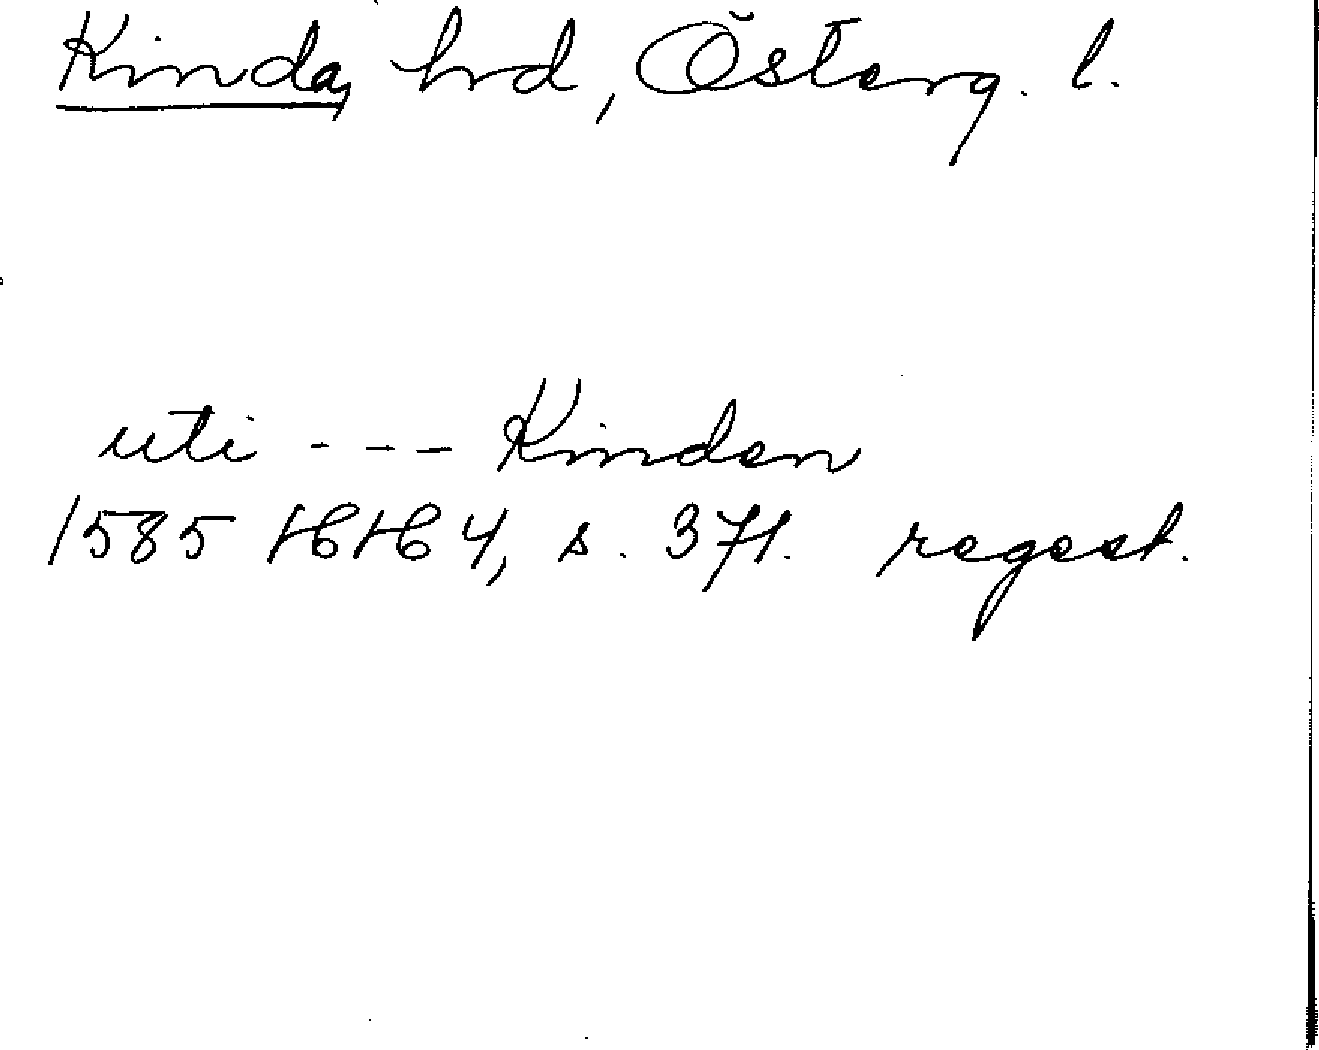 Kinda, hrd, Österg. l.
uti --- Kinden
1585 HH 4, s. 371. regest.